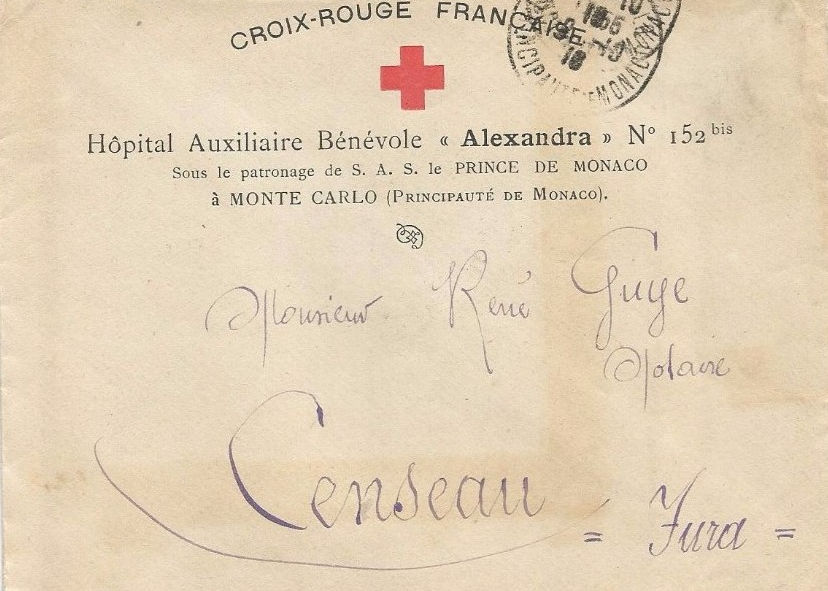 CROIX-ROUGE FRANÇAISE
Hôpital Auxiliaire Bénévole « Alexandra » Nº 152 bis
Sous le patronage de S. A. S. le PRINCE DE MONACO
à MONTE CARLO (PRINCIPAUTÉ DE MONACO).
Monsieur René Guye
Notaire
Censeau
= Jura =